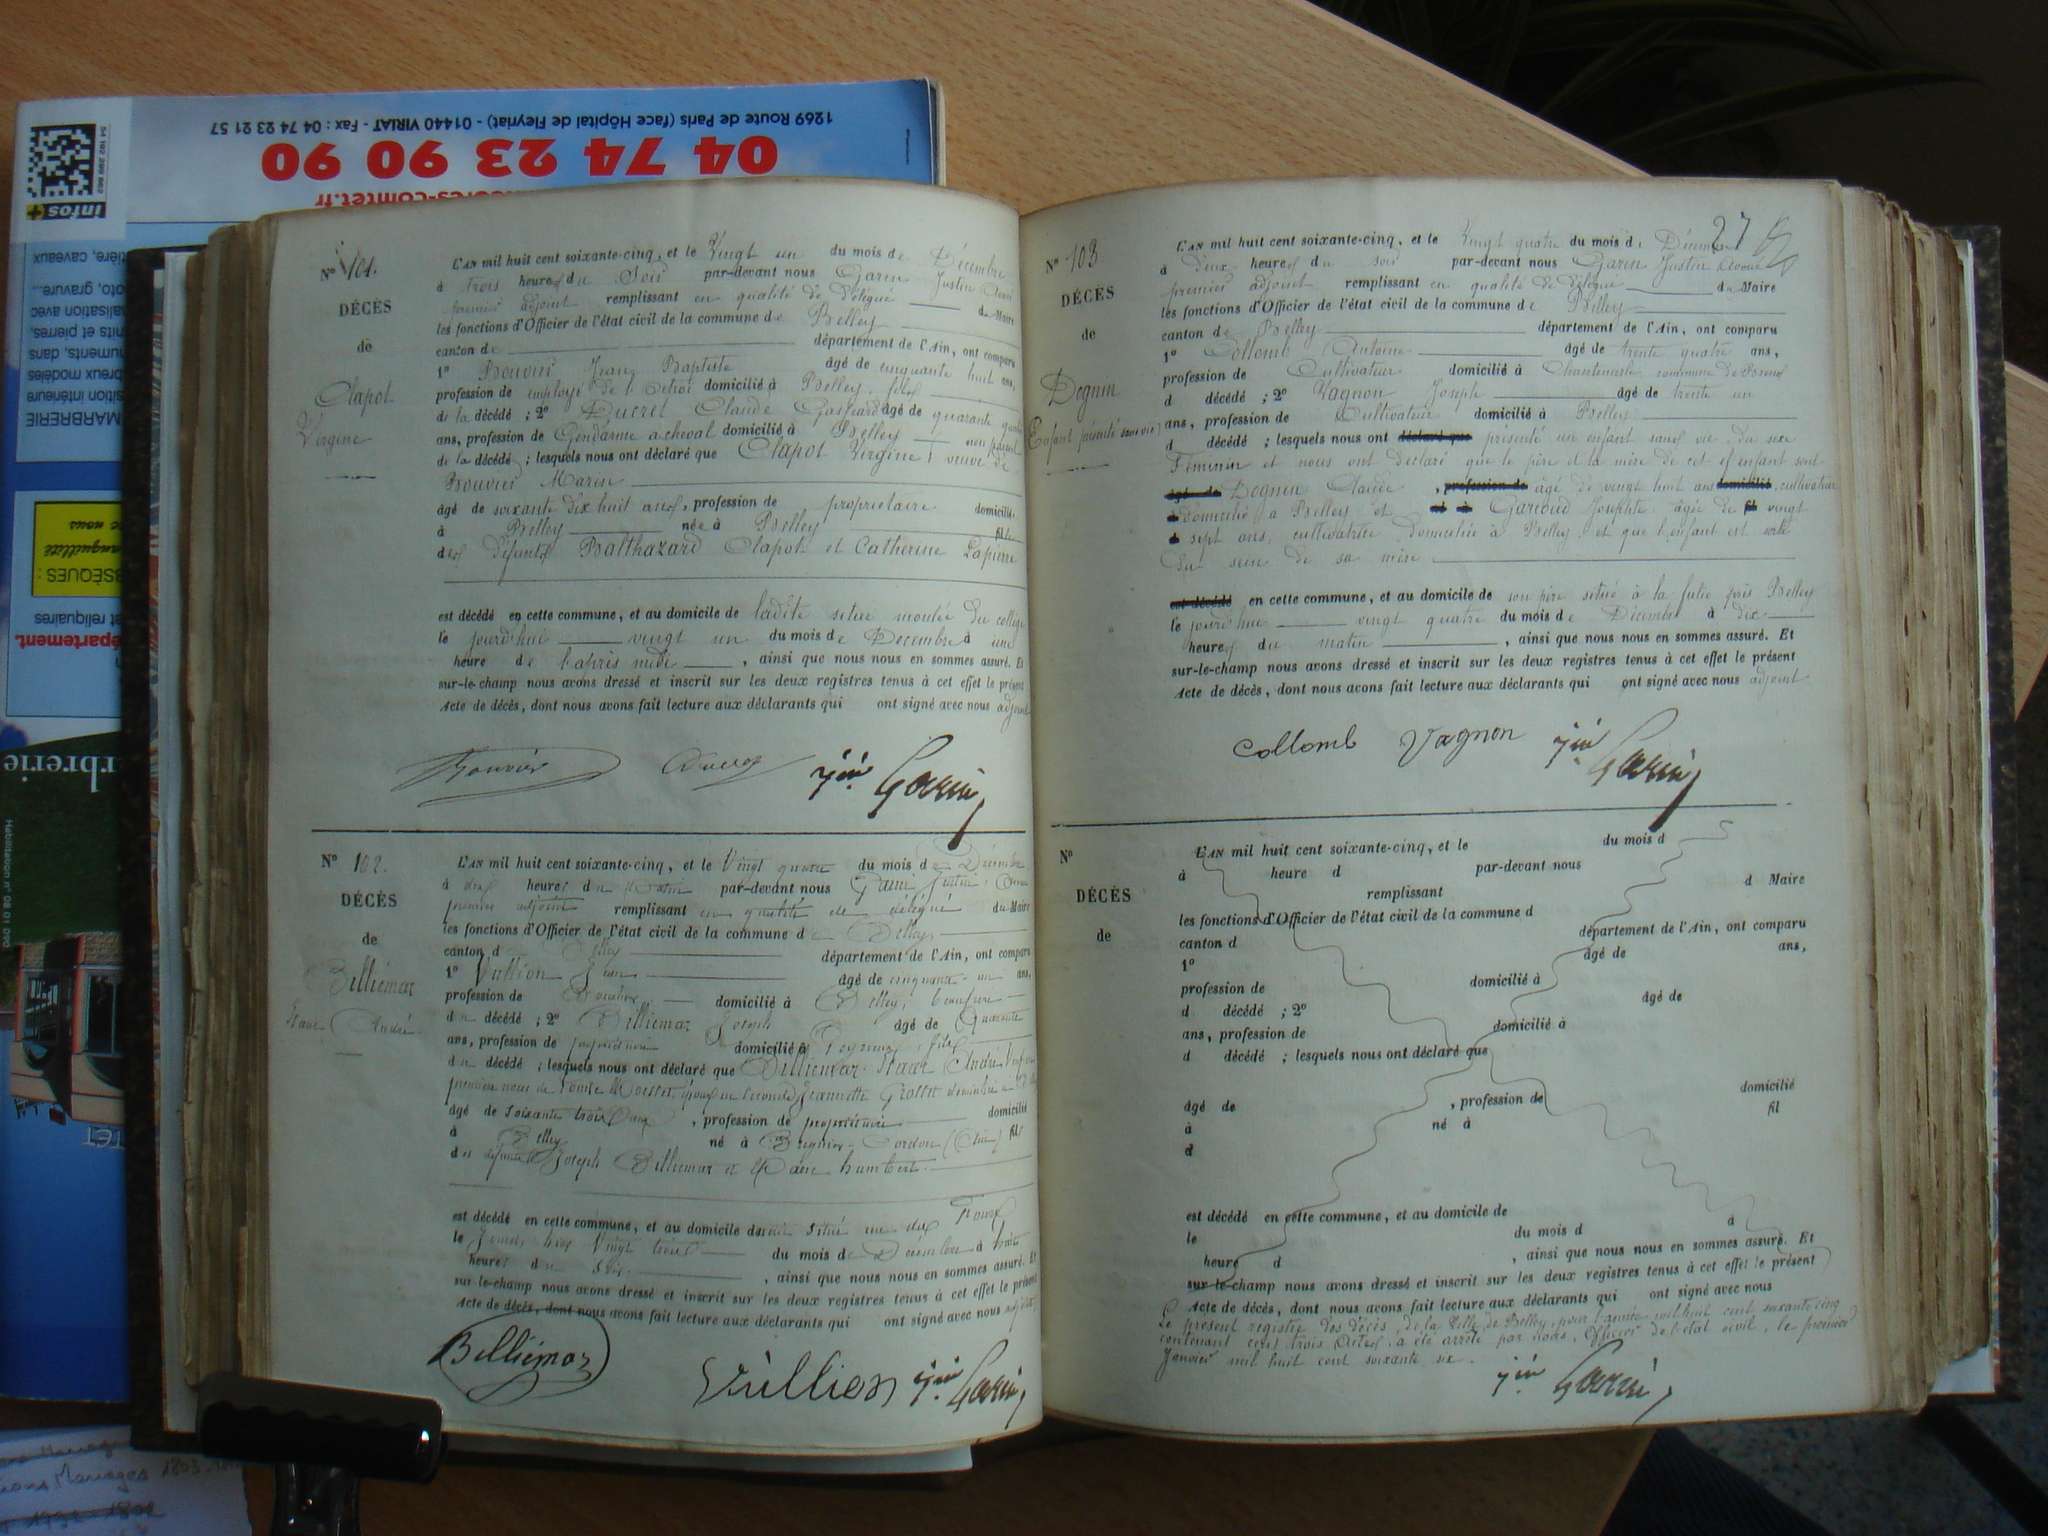 1269 Route de Paris (face Hôpital de Fleyriat) - 01440 VIRIAT - Fax : 04 74 23 21 57
04 74 23 90 90
infos+
MARBRERIE
OBSÈQUES :
département.
N° 101.
DÉCÈS
de
Clapot
Virgine
L'AN mil huit cent soixante-cinq, et le Vingt un du mois de Décembre
à trois heures du Soir par-devant nous Garin Justin
premier adjoint remplissant en qualité de délégué du Maire
les fonctions d'Officier de l'état civil de la commune de Belley
canton de département de l'Ain, ont comparu
1° Bouvier Jean Baptiste âgé de cinquante huit ans,
profession de employé de l'octroi domicilié à Belley, fils
de la décédé ; 2° Ducret Claude Gaspard âgé de quarante quatre
ans, profession de Gendarme a cheval domicilié à Belley non parent
de la décédé ; lesquels nous ont déclaré que Clapot Virgine, veuve de
Bouvier Marin
âgé de soixante dix huit ans, profession de propriétaire domicilié
à Belley née à Belley fille
des défunts Balthazard Clapot et Catherine Lapierre
est décédé en cette commune, et au domicile de ladite situé montée du collège
le jourd'hui vingt un du mois de Décembre à une
heure de l'après midi , ainsi que nous nous en sommes assuré. Et
sur-le-champ nous avons dressé et inscrit sur les deux registres tenus à cet effet le présent
Acte de décès, dont nous avons fait lecture aux déclarants qui ont signé avec nous adjoint
Bouvier Ducret Jin Garin
N° 102.
DÉCÈS
de
Billiemaz
André
L'AN mil huit cent soixante-cinq, et le Vingt quatre du mois de Décembre
à dix heures du Matin par-devant nous Garin Justin
premier adjoint remplissant en qualité de délégué du Maire
les fonctions d'Officier de l'état civil de la commune de Belley
canton de Belley département de l'Ain, ont comparu
1° Vullion âgé de cinquante un ans,
profession de domicilié à Belley, beaufrère
du décédé ; 2° Billiemaz Joseph âgé de Quarante
ans, profession de propriétaire domicilié à fils
du décédé ; lesquels nous ont déclaré que Billiemaz André
âgé de soixante trois ans , profession de propriétaire domicilié
à Belley né à Bregnier Cordon (Ain) fils
des défunts Joseph Billiemaz et humbert
est décédé en cette commune, et au domicile situé rue du Four
le jour Vingt trois du mois de Décembre à huit
heures du soir , ainsi que nous nous en sommes assuré. Et
sur-le-champ nous avons dressé et inscrit sur les deux registres tenus à cet effet le présent
Acte de décès, dont nous avons fait lecture aux déclarants qui ont signé avec nous adjoint
Billiémaz Vullion Jin Garin
27
N° 103
DÉCÈS
de
Dognin
Enfant présenté sans vie
L'AN mil huit cent soixante-cinq, et le Vingt quatre du mois de Décembre
à deux heures du soir par-devant nous Garin Justin avoué
premier adjoint remplissant en qualité de délégué du Maire
les fonctions d'Officier de l'état civil de la commune de Belley
canton de Belley département de l'Ain, ont comparu
1° Collomb Antoine âgé de trente quatre ans,
profession de Cultivateur domicilié à commune de
d décédé ; 2° Vagnon Joseph âgé de trente un
ans, profession de Cultivateur domicilié à Belley
d décédé ; lesquels nous ont déclaré que présenté un enfant sans vie du sexe
Féminin et nous ont déclaré que le père et la mère de cet enfant sont
âgé de Dognin Claude , profession de âgé de vingt huit ans domicilié cultivateur
domicilié à Belley et né à Josephte âgée de fil vingt
sept ans, cultivatrice, domiciliée à Belley, et que l'enfant est sorti
du sein de sa mère
est décédé en cette commune, et au domicile de son père situé à la près Belley
le jourd'hui vingt quatre du mois de Décembre à dix
heures du matin , ainsi que nous nous en sommes assuré. Et
sur-le-champ nous avons dressé et inscrit sur les deux registres tenus à cet effet le présent
Acte de décès, dont nous avons fait lecture aux déclarants qui ont signé avec nous adjoint
Collomb Vagnon Jin Garin
N°
DÉCÈS
de
L'AN mil huit cent soixante-cinq, et le du mois d
à heure d par-devant nous
remplissant d Maire
les fonctions d'Officier de l'état civil de la commune d
canton d département de l'Ain, ont comparu
1° âgé de ans,
profession de domicilié à
d décédé ; 2° âgé de
ans, profession de domicilié à
d décédé ; lesquels nous ont déclaré que
âgé de , profession de domicilié
à né à fil
d
est décédé en cette commune, et au domicile de
le du mois d à
heure d , ainsi que nous nous en sommes assuré. Et
sur-le-champ nous avons dressé et inscrit sur les deux registres tenus à cet effet le présent
Acte de décès, dont nous avons fait lecture aux déclarants qui ont signé avec nous
Le présent registre des décès de la Ville de Belley, pour l'année mil huit cent soixante cinq
contenant cent trois actes, a été arrêté par nous, Officier de l'état civil, le premier
Janvier mil huit cent soixante six.
Jin Garin